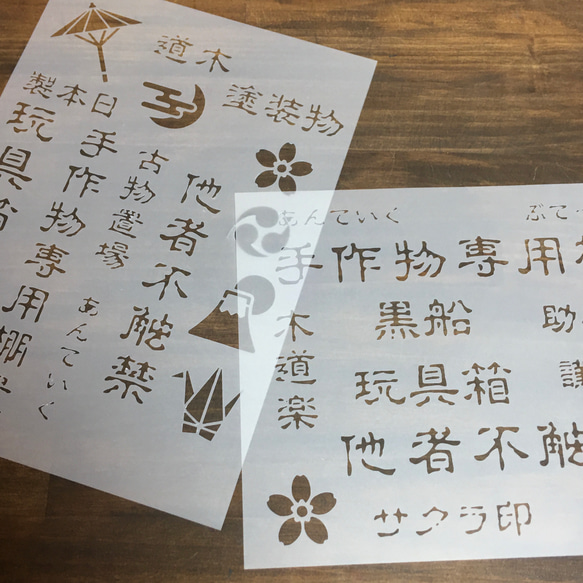 道木
塗装物
製本日
玩具箱
手作物専用棚
古物置場
他者不触禁
あんていく
あんていく
ぶて
手作物専用
木道楽
黒船
助
玩具箱
他者不触
サクラ印